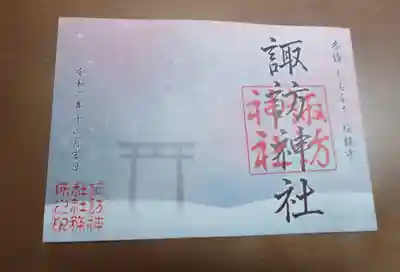 奉拝
諏訪神社
諏訪
神社
令和 年十二月吉日
諏訪神
社社務
所之印